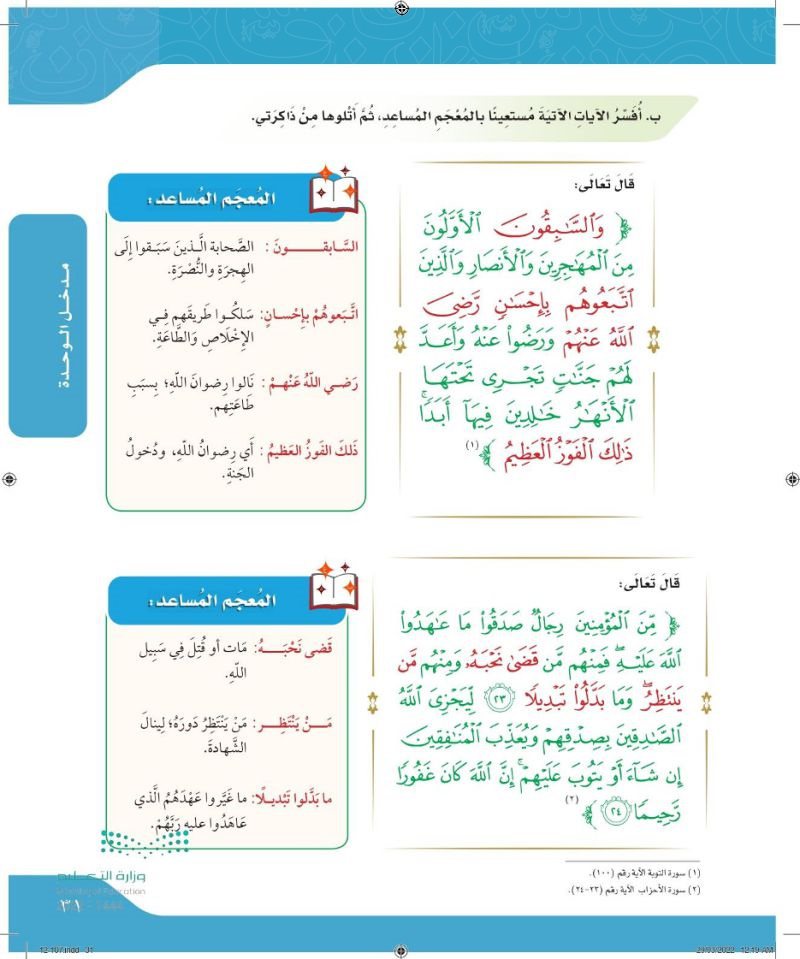 ب. أُفَسِّرُ الآيَاتِ الآتِيَةَ مُستَعِينًا بالمُعْجَمِ المُسَاعِدِ، ثُمَّ أَتْلُوها مِنْ ذَاكِرَتي.
قَالَ تَعَالَى:
﴿ وَٱلسَّـٰبِقُونَ ٱلْأَوَّلُونَ
مِنَ ٱلْمُهَـٰجِرِينَ وَٱلْأَنصَارِ وَٱلَّذِينَ
ٱتَّبَعُوهُم بِإِحْسَـٰنٍ رَّضِىَ
ٱللَّهُ عَنْهُمْ وَرَضُوا۟ عَنْهُ وَأَعَدَّ
لَهُمْ جَنَّـٰتٍ تَجْرِى تَحْتَهَا
ٱلْأَنْهَـٰرُ خَـٰلِدِينَ فِيهَآ أَبَدًا ۚ
ذَٰلِكَ ٱلْفَوْزُ ٱلْعَظِيمُ ﴾ (١)
المُعجَم المُساعد:
السَّابقـــونَ : الصَّحابة الَّذينَ سَبَقوا إِلَى
الهِجرَةِ والنُّصْرَةِ.
اتَّبَعوهُمْ بِإِحْسانٍ: سَلَكُوا طَرِيقَهم فِـي
الإِخْلَاصِ وَالطَّاعَةِ.
رَضي اللّهُ عَنْهـمْ : نَالوا رِضوانَ اللّهِ؛ بِسبَبِ
طَاعَتِهم.
ذَلكَ الفَوزُ العَظيمُ : أَي رِضوانُ اللّهِ، ودُخولُ
الجَنةِ.
مدخل الوحدة
قَالَ تَعَالَى:
﴿ مِّنَ ٱلْمُؤْمِنِينَ رِجَالٌ صَدَقُوا۟ مَا عَـٰهَدُوا۟
ٱللَّهَ عَلَيْهِ ۖ فَمِنْهُم مَّن قَضَىٰ نَحْبَهُۥ وَمِنْهُم مَّن
يَنتَظِرُ ۖ وَمَا بَدَّلُوا۟ تَبْدِيلًا ٢٣ لِّيَجْزِىَ ٱللَّهُ
ٱلصَّـٰدِقِينَ بِصِدْقِهِمْ وَيُعَذِّبَ ٱلْمُنَـٰفِقِينَ
إِن شَآءَ أَوْ يَتُوبَ عَلَيْهِمْ ۚ إِنَّ ٱللَّهَ كَانَ غَفُورًا
رَّحِيمًا ٢٤ ﴾ (٢)
المُعجَم المُساعد:
قَضى نَحْبَـــهُ: مَات أو قُتِلَ فِي سَبِيل
اللّهِ.
مَــنْ يَنْتَظِــر: مَنْ يَنْتَظِرُ دَورَهُ؛ لِينالَ
الشَّهادةَ.
ما بَدَّلوا تَبْديـلًا: ما غَيَّروا عَهْدَهُمُ الَّذي
عَاهَدُوا عليه رَبَّهُمْ.
(١) سورة التوبة الآية رقم (١٠٠).
(٢) سورة الأحزاب الآية رقم (٢٣-٢٤).
وزارة التعليم
Ministry of Education
٣١
12-107.indd 31
29/03/2022 12:19 AM